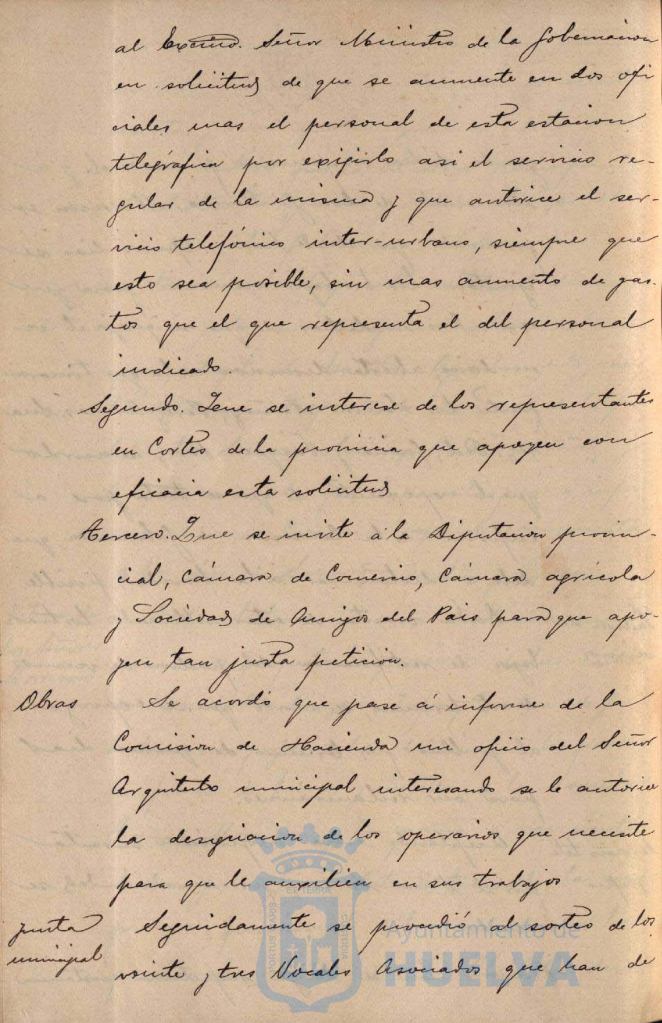 al Excmo. Señor Ministro de la Gobernacion
en solicitud de que se aumente en dos ofi
ciales mas el personal de esta estacion
telegráfica por exigirlo asi el servicio re-
gular de la misma y que autorice el ser-
vicio telefónico inter-urbano, siempre que
esto sea posible, sin mas aumento de gas-
tos que el que representa el del personal
indicado.
Segundo. Que se interese de los representantes
en Cortes de la provincia que apoyen con
eficacia esta solicitud
Tercero. Que se invite á la Diputacion provin-
cial, Cámara de Comercio, Cámara agrícola
y Sociedad de Amigos del Pais para que apo-
yen tan justa peticion.
Obras Se acordó que pase á informe de la
Comision de Hacienda un oficio del Señor
Arquitecto municipal interesando se le autorice
la designacion de los operarios que necesite
para que le auxilien en sus trabajos
Junta municipal Seguidamente se procedió al sorteo de los
veinte y tres Vocales Asociados que han de
Ayuntamiento de
HUELVA